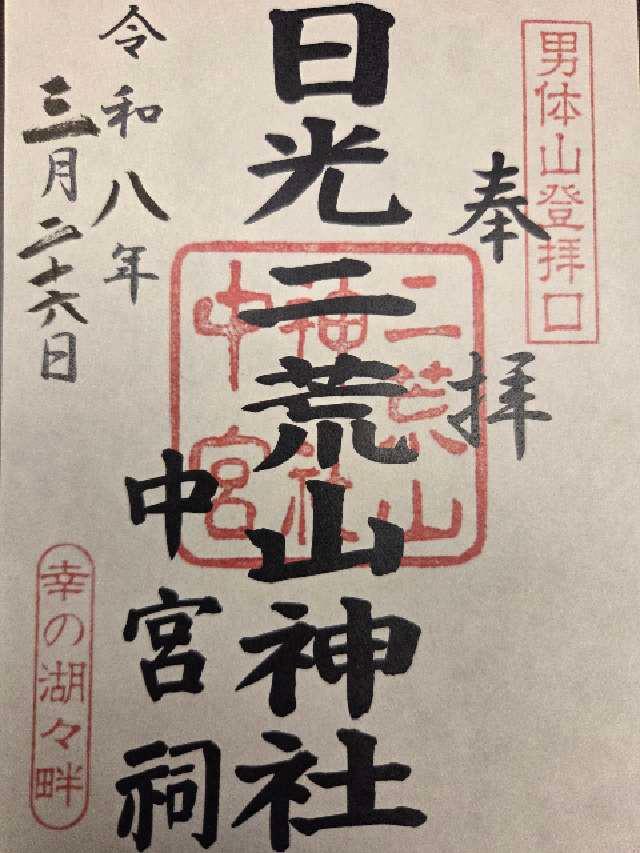 男体山登拝口
奉拝
日光二荒山神社
中宮祠
二荒山
神社
中宮
令和八年
三月二十六日
幸の湖々畔